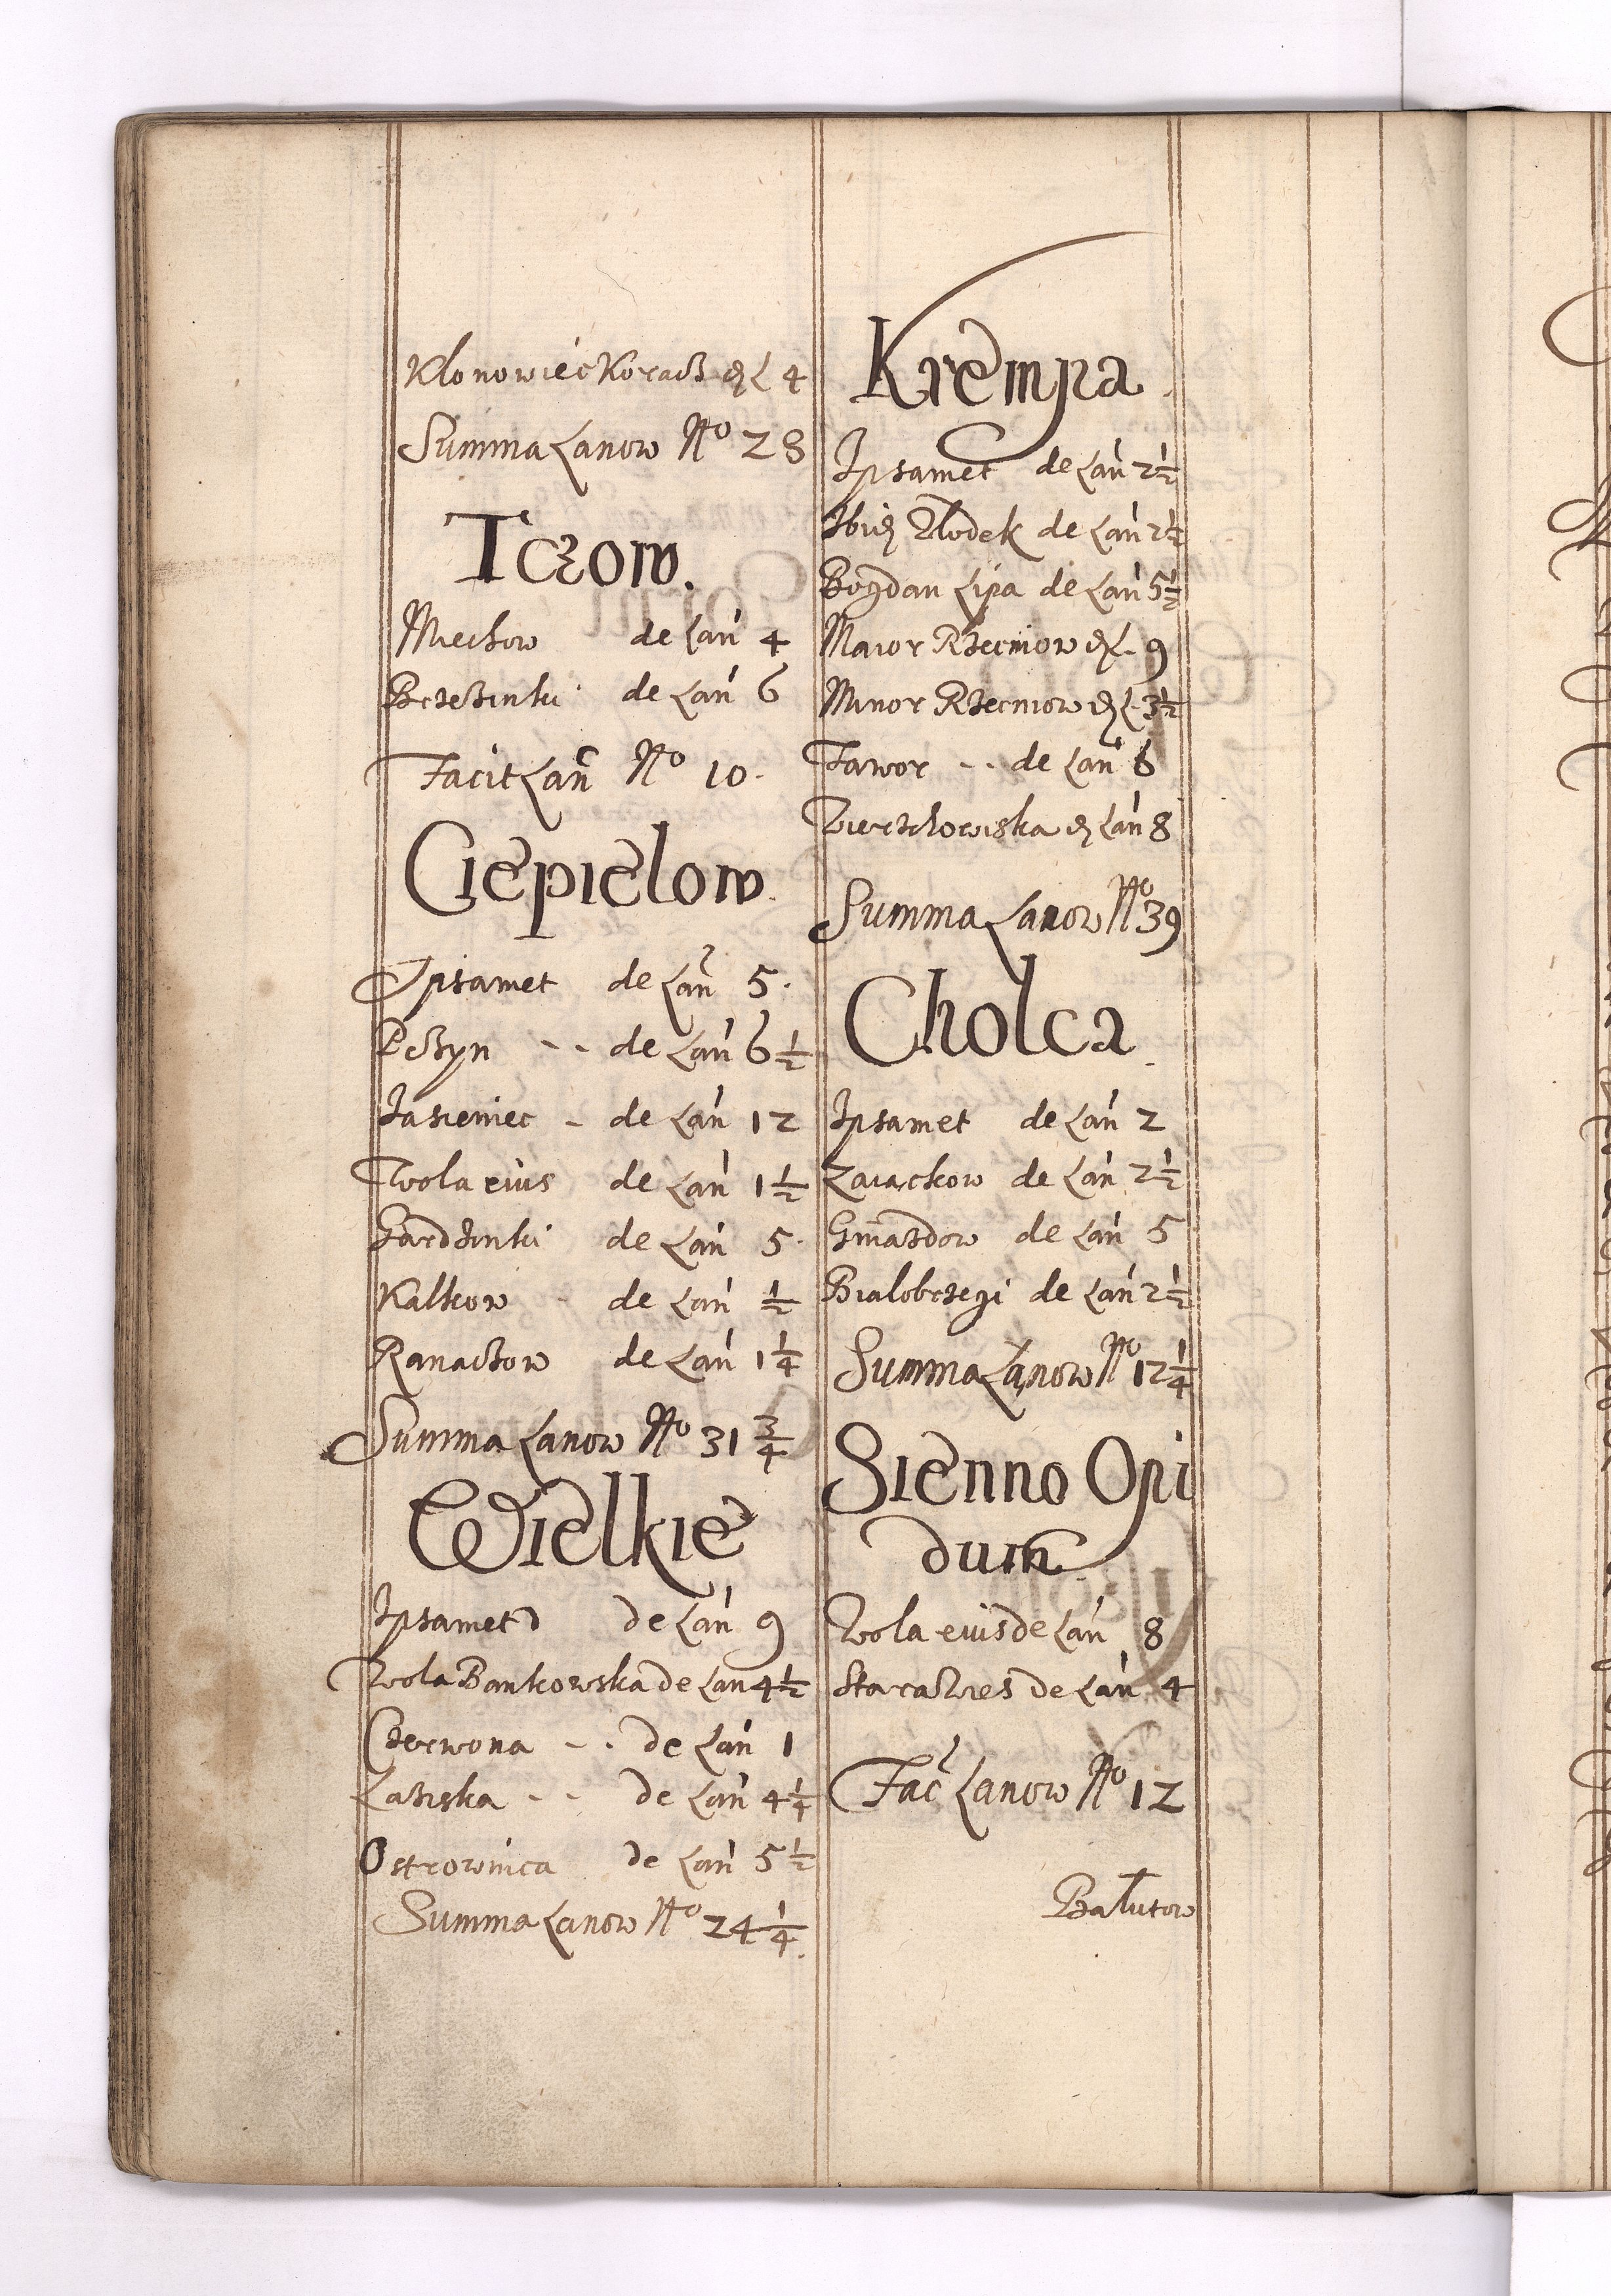 Klonowiec Koracz de L 4
Summa Lanow No 28
Tczow.
Miechow de Lan 4
Brzezinki de Lan 6
Facit Lan No 10.
Ciepielow.
Ipsamet de Lan 5.
Pczyn -- de Lan 6 1/2
Jasieniec - de Lan 12
Wola eius de Lan 1 1/2
Gardzinki de Lan 5.
Kalkow - de Lan 1/2
Ranachow de Lan 1 1/4
Summa Lanow No 31 3/4
Wielkie
Ipsamet de Lan 9
Wola Bankowska de Lan 4 1/2
Czerwona -- de Lan 1
Laziska -- de Lan 4 1/4
Ostrownica de Lan 5 1/2
Summa Lanow No 24 1/4.
Krempa.
Ipsamet de Lan 2 1/2
Ibid Zlodek de Lan
Bogdan Lipa de Lan 5 1/2
Maior Rzecniow de L. 9
Minor Rzecniow de L. 3 1/2
Jawor -- de Lan 6
Wierzchowiska de Lan 8
Summa Lanow No 39
Cholca.
Ipsamet de Lan 2
Zaiaczkow de Lan 2 1/2
Gniazdow de Lan 5
Bialobrzegi de Lan
Summa Lanow No 12 1/4
Sienno Opi
dum
Wola eius de Lan 8
Stara Wies de Lan 4
Fac Lanow No 12
Bałutow